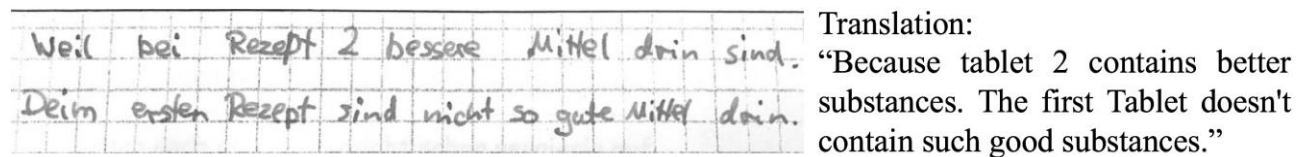 Weil bei Rezept 2 bessere Mittel drin sind.
Deim ersten Rezept sind nicht so gute Mittel drin.
Translation:
“Because tablet 2 contains better
substances. The first Tablet doesn't
contain such good substances.”